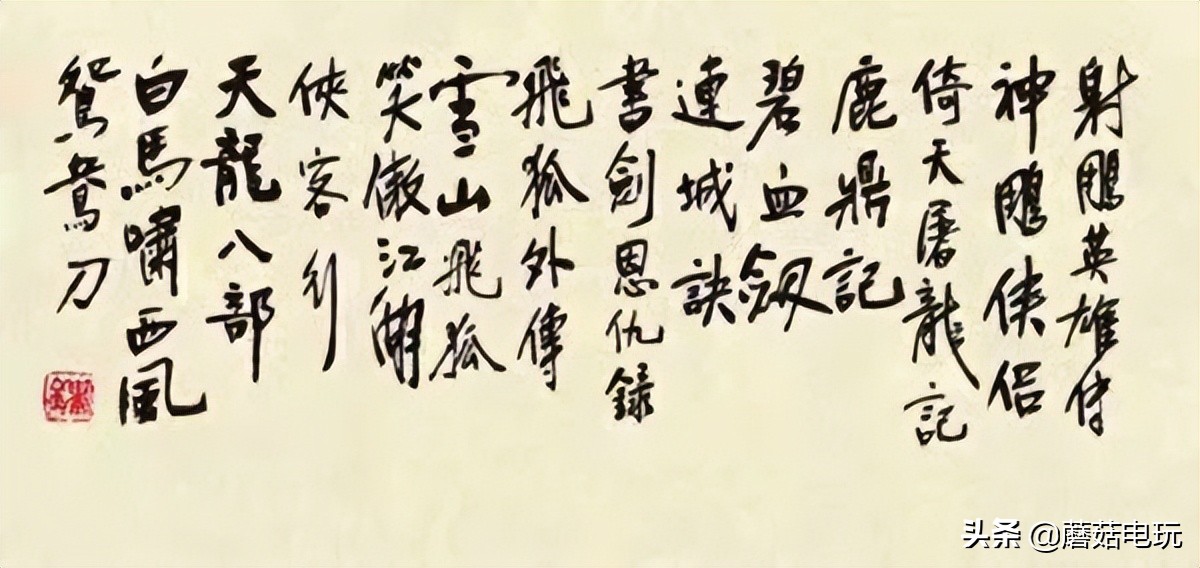 射鵰英雄传
神鵰侠侣
倚天屠龍記
鹿鼎記
碧血劔
連城訣
書劍恩仇録
飛狐外傳
雪山飛狐
笑傲江湖
俠客行
天龍八部
白馬嘯西風
鴛鴦刀
头条 @蘑菇电玩